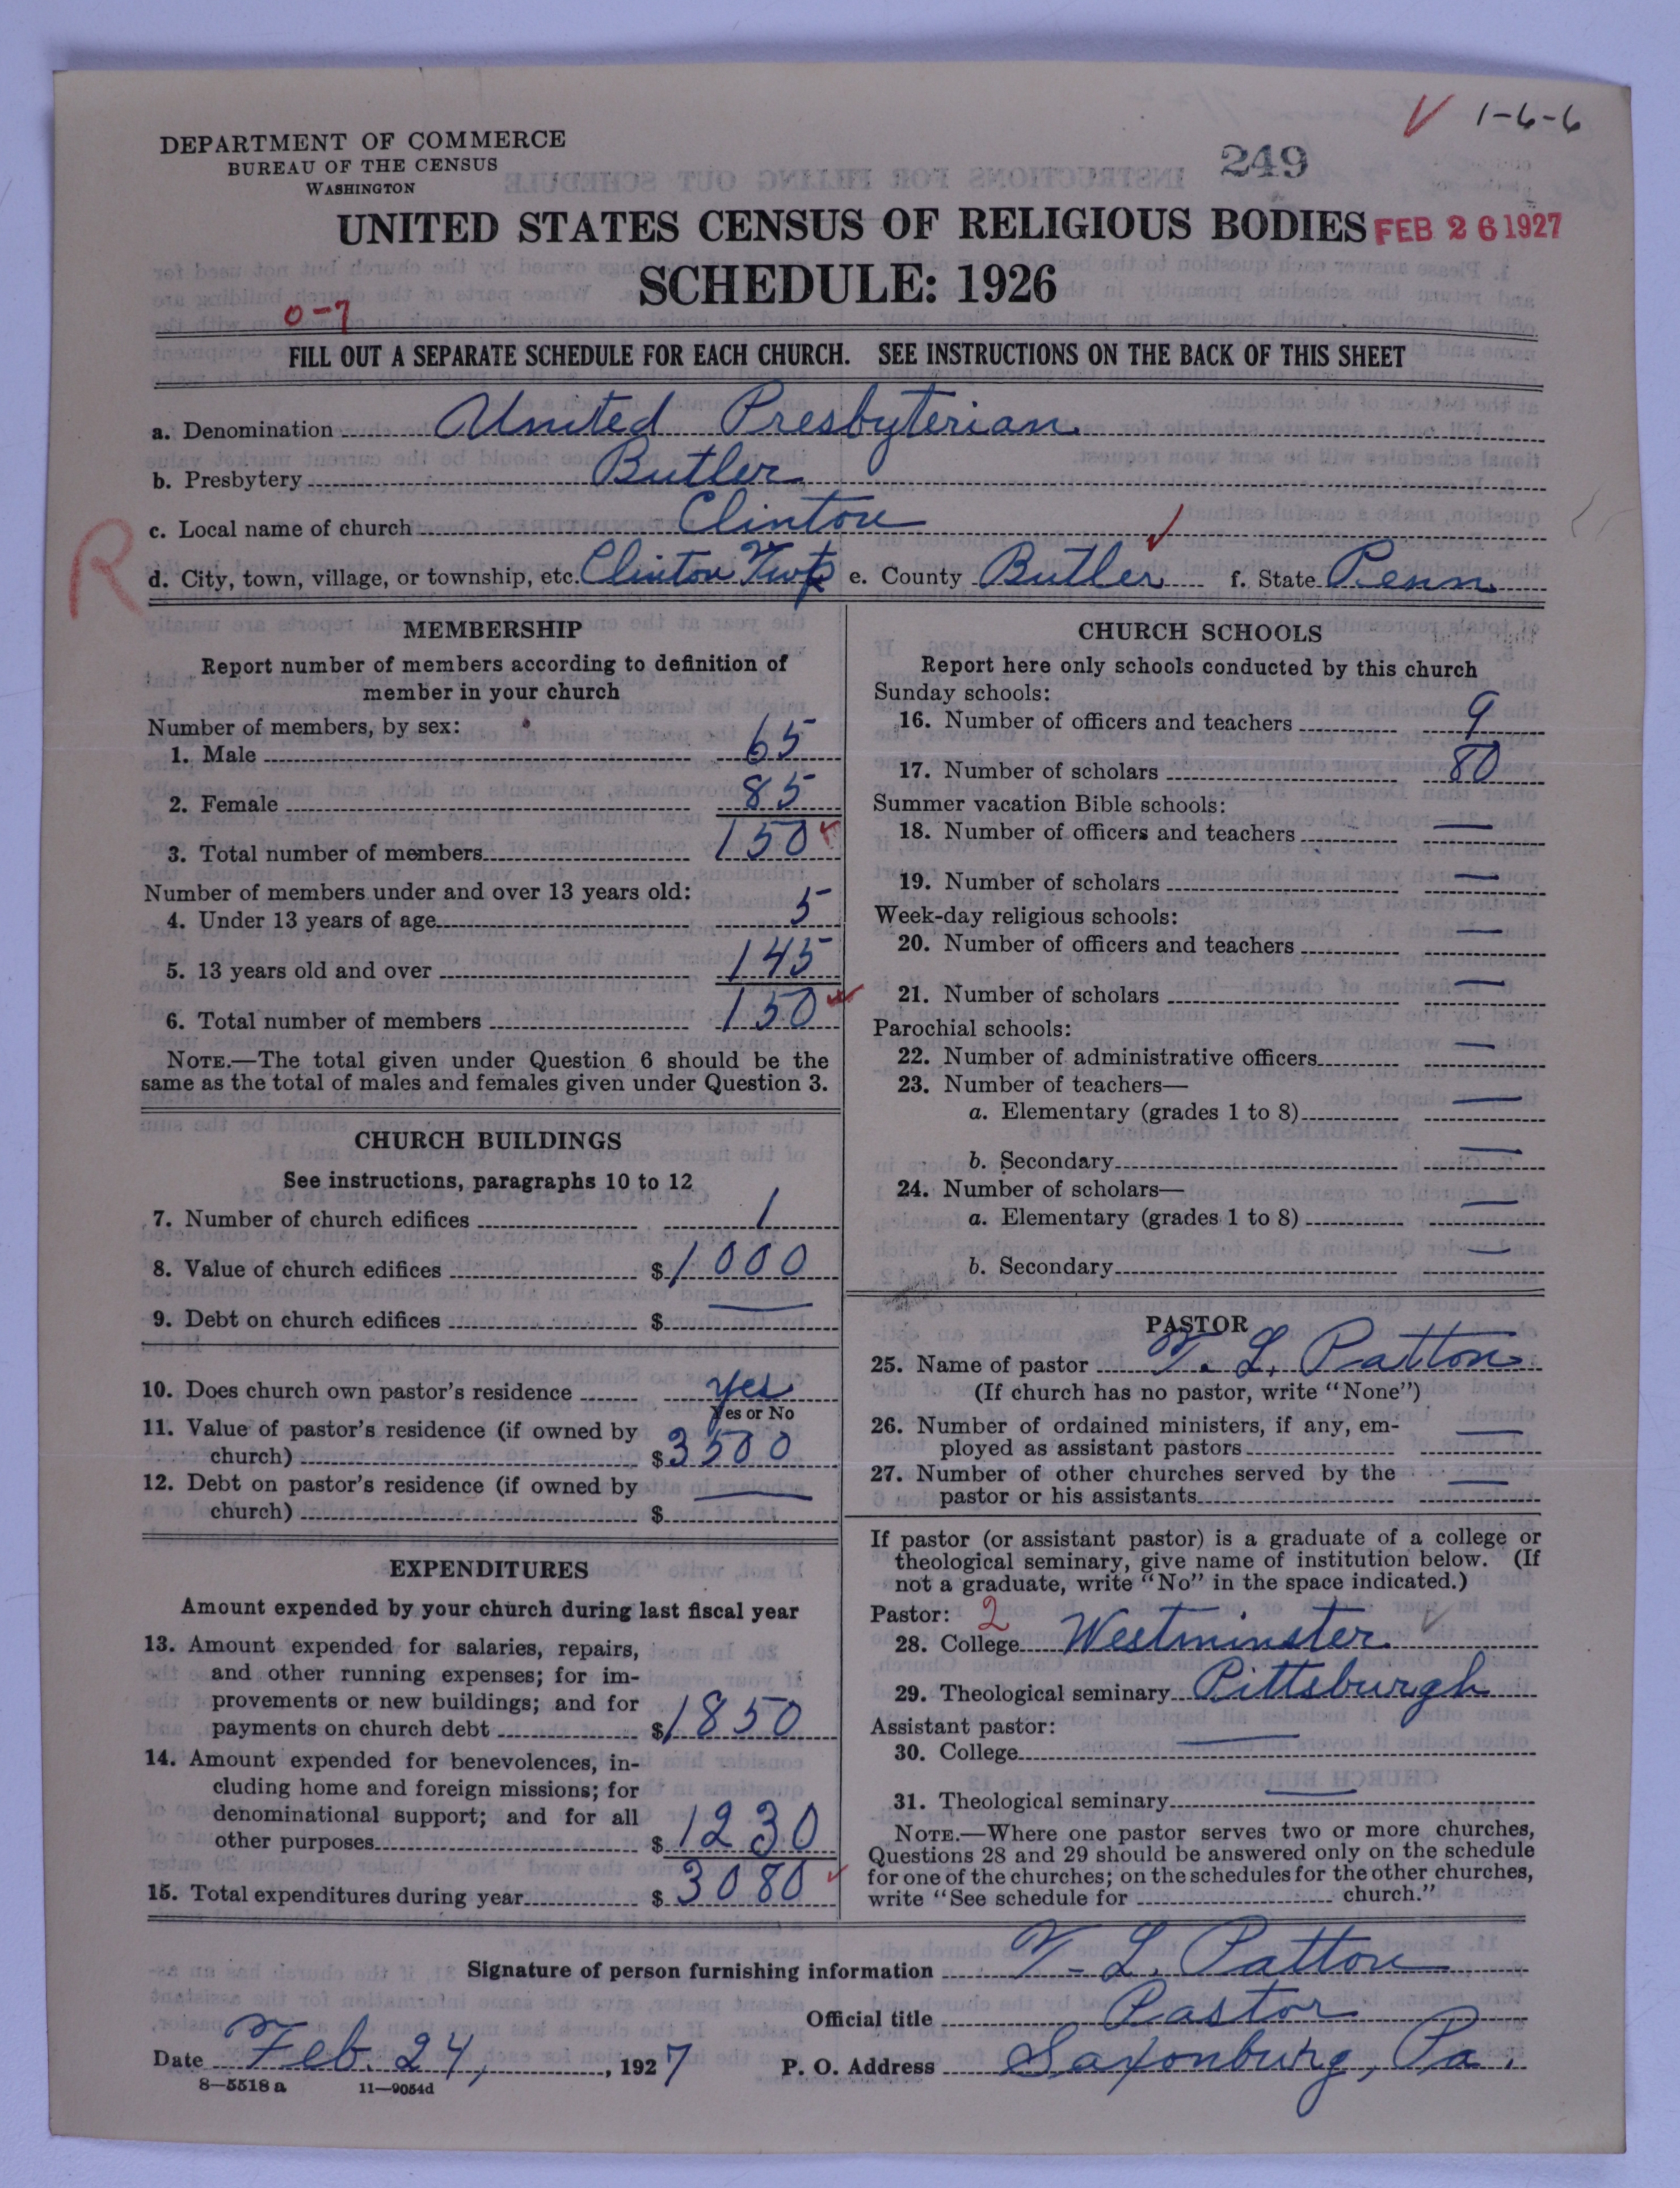 V 1-6-6
DEPARTMENT OF COMMERCE
BUREAU OF THE CENSUS
WASHINGTON
249
UNITED STATES CENSUS OF RELIGIOUS BODIES FEB 26 1927
SCHEDULE: 1926
0-7
FILL OUT A SEPARATE SCHEDULE FOR EACH CHURCH. SEE INSTRUCTIONS ON THE BACK OF THIS SHEET
a. Denomination United Presbyterian.
b. Presbytery Butler
c. Local name of church Clinton
R
d. City, town, village, or township, etc. Clinton Twp e. County Butler f. State Penn.
MEMBERSHIP
Report number of members according to definition of
member in your church
Number of members, by sex:
1. Male 65
2. Female 85
3. Total number of members 150
Number of members under and over 13 years old:
4. Under 13 years of age 5
5. 13 years old and over 145
6. Total number of members 150
NOTE.—The total given under Question 6 should be the
same as the total of males and females given under Question 3.
CHURCH BUILDINGS
See instructions, paragraphs 10 to 12
7. Number of church edifices 1
8. Value of church edifices $1000
9. Debt on church edifices $ —
10. Does church own pastor's residence yes
Yes or No
11. Value of pastor's residence (if owned by
church) $3500
12. Debt on pastor's residence (if owned by
church) $ —
EXPENDITURES
Amount expended by your church during last fiscal year
13. Amount expended for salaries, repairs,
and other running expenses; for im-
provements or new buildings; and for
payments on church debt $1850
14. Amount expended for benevolences, in-
cluding home and foreign missions; for
denominational support; and for all
other purposes $1230
15. Total expenditures during year $3080
CHURCH SCHOOLS
Report here only schools conducted by this church
Sunday schools:
16. Number of officers and teachers 9
17. Number of scholars 80
Summer vacation Bible schools:
18. Number of officers and teachers —
19. Number of scholars —
Week-day religious schools:
20. Number of officers and teachers —
21. Number of scholars —
Parochial schools:
22. Number of administrative officers —
23. Number of teachers—
a. Elementary (grades 1 to 8) —
b. Secondary —
24. Number of scholars—
a. Elementary (grades 1 to 8) —
b. Secondary —
PASTOR
25. Name of pastor T. L. Patton
(If church has no pastor, write "None")
26. Number of ordained ministers, if any, em-
ployed as assistant pastors —
27. Number of other churches served by the
pastor or his assistants —
If pastor (or assistant pastor) is a graduate of a college or
theological seminary, give name of institution below. (If
not a graduate, write "No" in the space indicated.)
Pastor: 2
28. College Westminster
29. Theological seminary Pittsburgh
Assistant pastor:
30. College —
31. Theological seminary —
NOTE.—Where one pastor serves two or more churches,
Questions 28 and 29 should be answered only on the schedule
for one of the churches; on the schedules for the other churches,
write "See schedule for church."
Signature of person furnishing information T. L. Patton
Official title Pastor
Date Feb. 24, 1927 P. O. Address Saxonburg, Pa.
8—5518 a 11—9054d